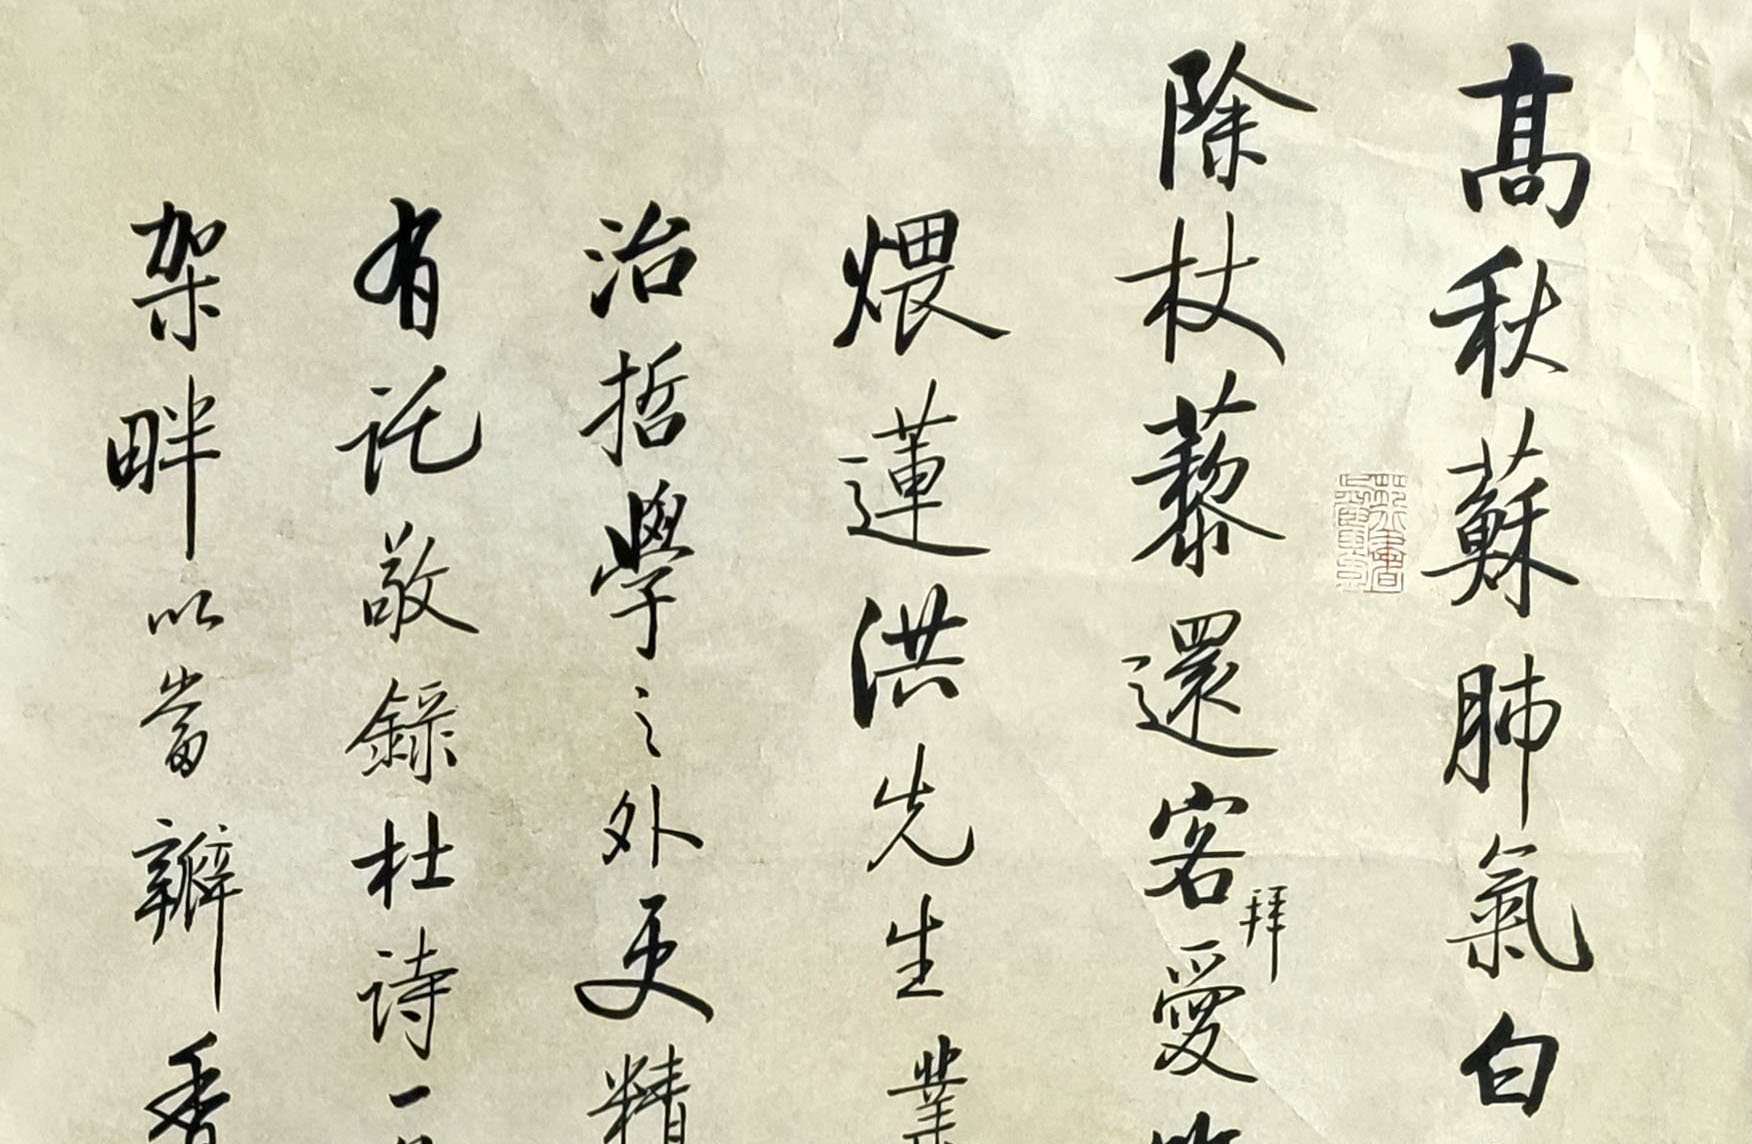 高秋蘇肺氣白
除杖藜還客拜愛
煨蓮洪先生業
治哲學之外更精
有託敬錄杜詩一
架畔以當瓣香